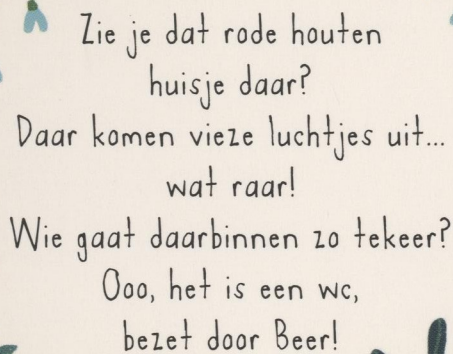 Zie je dat rode houten
huisje daar?
Daar komen vieze luchtjes uit...
wat raar!
Wie gaat daarbinnen zo tekeer?
Ooo, het is een wc,
bezet door Beer!